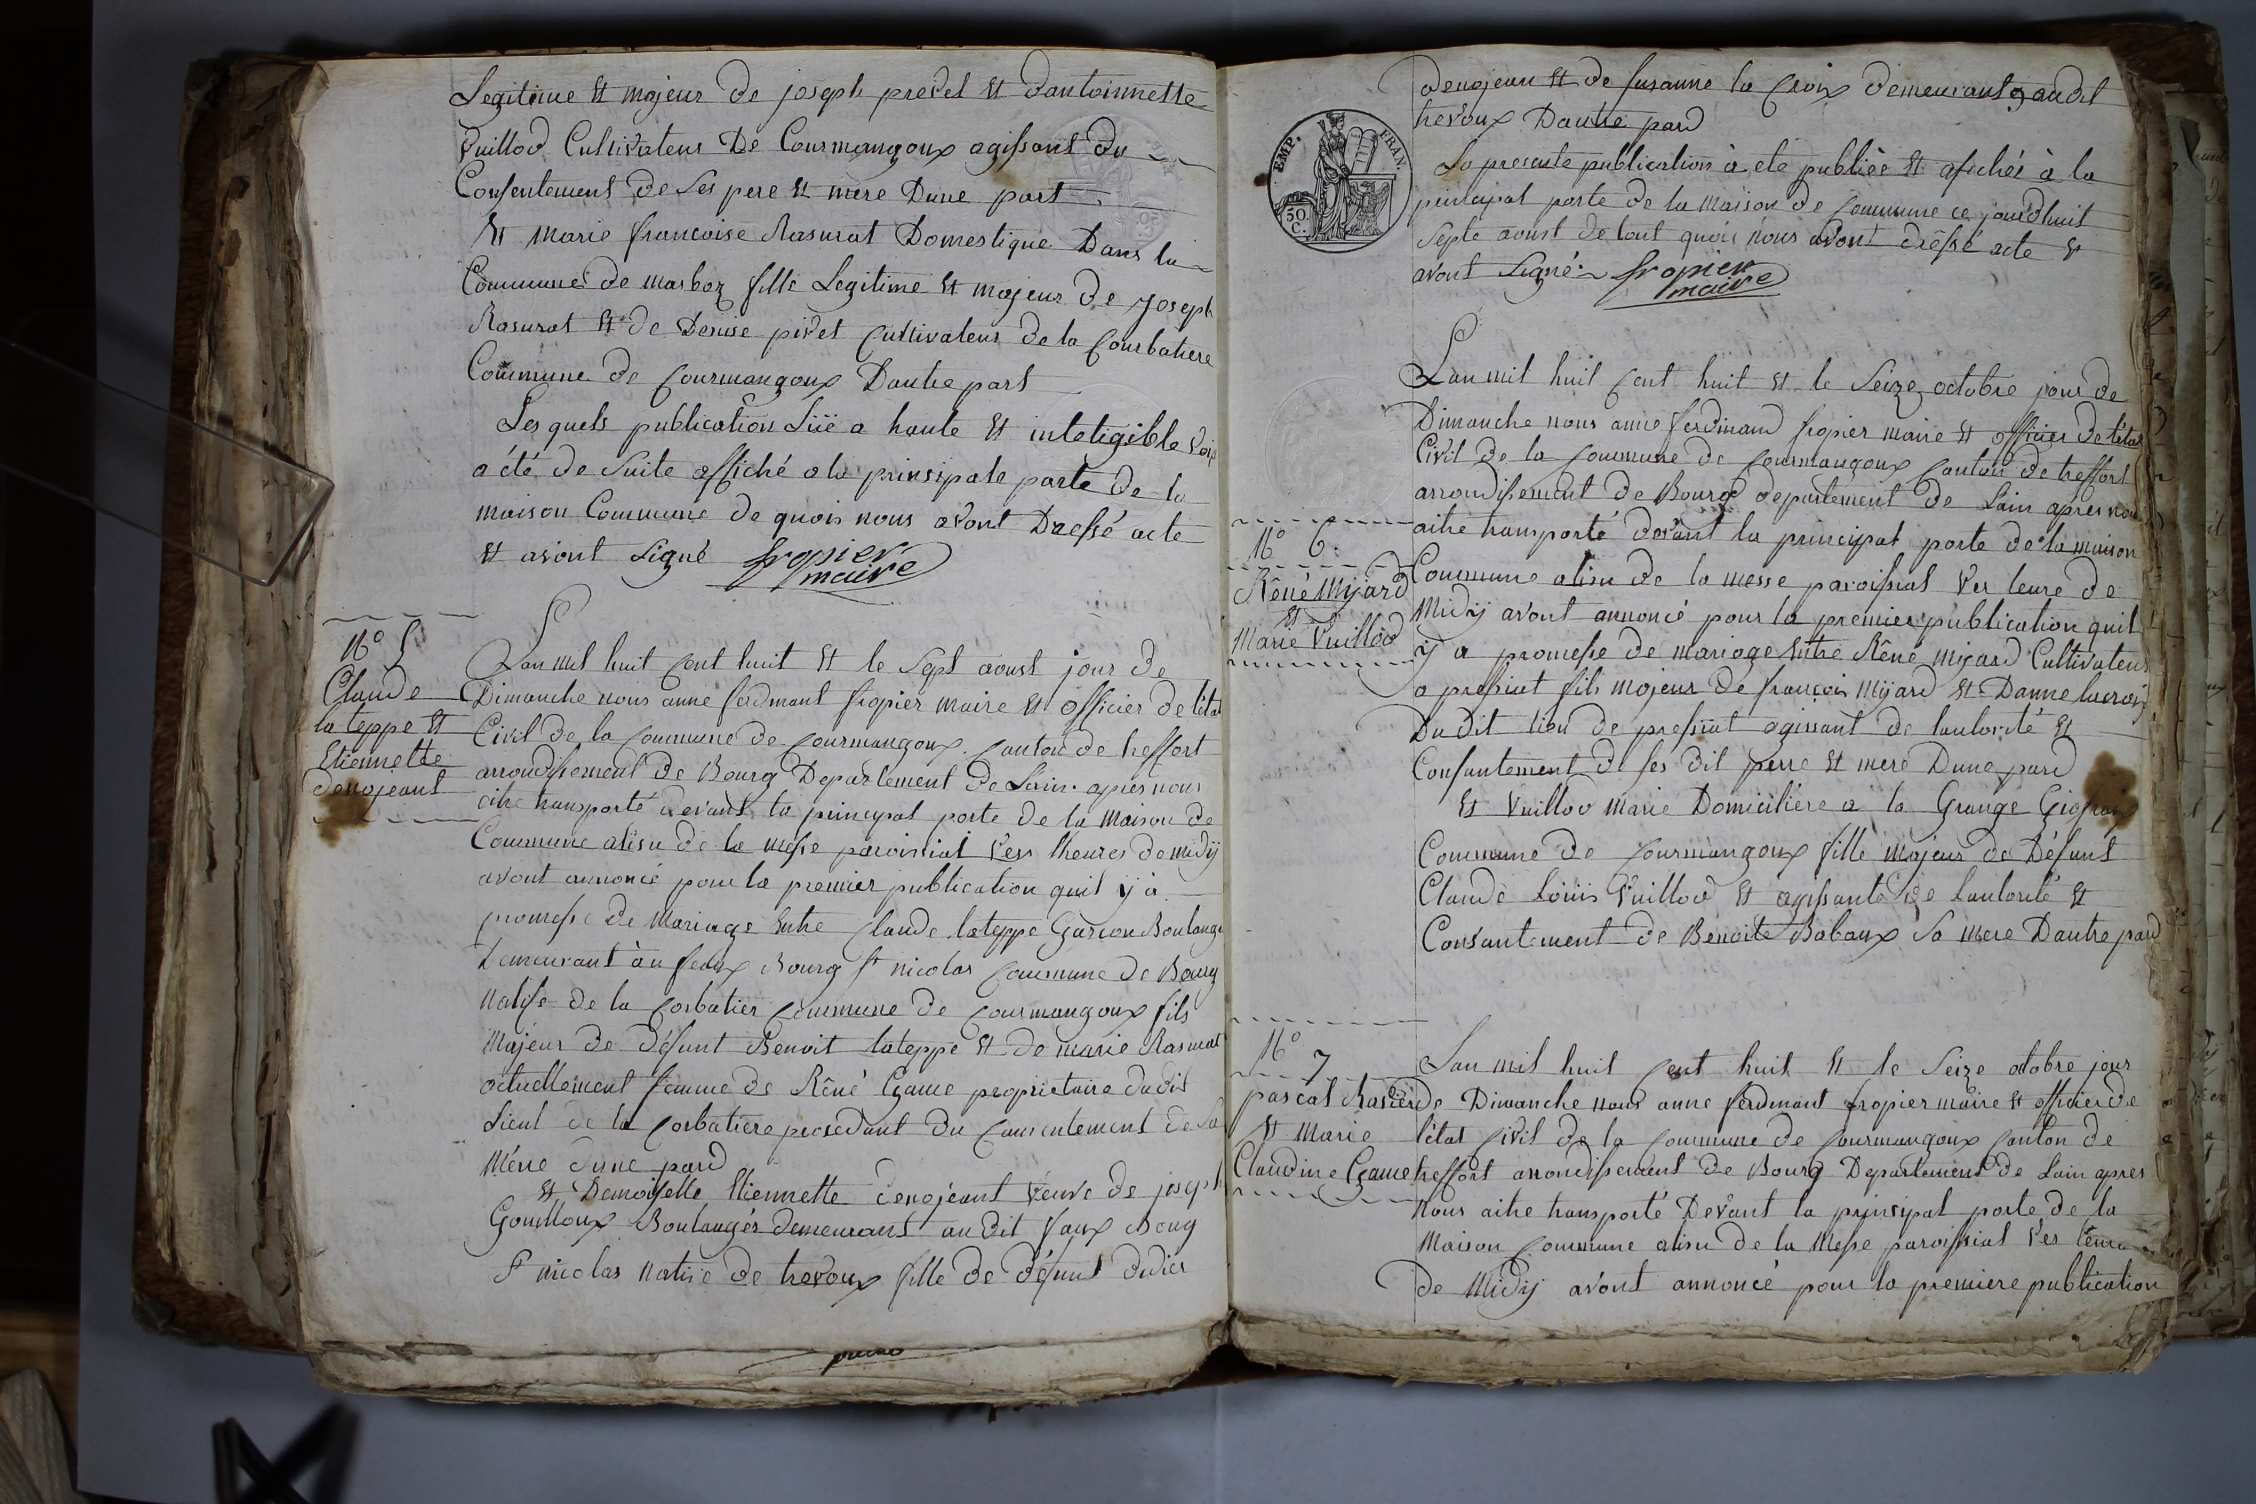 Legitime et majeur de joseph predel et dantoinnette
Vuillod Cultivateur De Courmangoux agissant du
Consentement de Ses pere et mere Dune part
Et marie francoise Rasurat Domestique Dans la
Commune de marboz fille Legitime et majeur de Joseph
Rasurat et de Denise pivet Cultivateur de la Courbatiere
Commune de Courmangoux Dautre part
Les quels publication Liie a haute et inteligible Voix
a été de Suite affiché a la principale porte de la
maison Commune de quois nous avont Dressé acte
et avont Signé fropier
maire
N° 5
Claude
la teppe et
Etiennette
denojeant
Lan mil huit Cent huit et le Sept aoust jour de
Dimanche nous anne ferdinant fropier maire et officier de létat
Civil de la Commune de Courmangoux Canton de treffort
arrondissement de Bourg Departement de Lain apres nous
aitre transporté devant la principal porte de la Maison de
Commune alisu de la messe paroissial Vers lheures de midij
avont annoncé pour la premier publication quil y à
promesse de Mariage Entre Claude lateppe Garcon Boulange
Demeurant àu feaux Bourg St nicolas Commune de Bourg
natife de la Corbatier Commune de Courmangoux fils
Majeur de défunt Benoit lateppe et de marie Rasurat
actuellement femme de Rêné Game proprietaire dudit
Lieut de la Corbatiere procedant du Consentement de Sa
Mére dune pard
et Demoiselle Etiennette denojeant Veuve de joseph
Gouilloux Boulangér demeurant au dit faux Boug
St nicolas native de trevoux fille de défunt didier
EMP. FRAN.
50.
C.
denojean et de Susanne la Croix demeurant audit
trevoux Dautre pard
La presente publication à eté publiée et afichée à la
principal porte de la maison de Commune ce jourdhuit
Septe aoust de tout quoi nous avont drêssé acte et
avont Signé fropier
maire
N° 6.
Rêné Mijard
et
Marie Vuillod
Lan mil huit Cent huit et le Seize octobre jour de
Dimanche nous anne ferdinand fropier maire et officier de létat
Civil de la Commune de Courmangoux Canton de treffort
arrondissement de Bourg departement de Lain apres nous
aitre transporté devant la principal porte de la maison
Commune alisu de la messe paroissial Ver leure de
Midij avont annoncé pour la premier publication quil
y a promesse de mariage Entre Rêné mijard Cultivateur
a pressiat fils majeur de françois Mijard et Danne lacroix
Du Dit lieu de pressiat agissant de lautorité et
Consantement de ses dit perre et mere Dune pard
et Vuillod Marie Domiciliére a la Grange
Commune de Courmangoux fille majeur de Défunt
Claude Louis Vuillod et agissante de Lautorité et
Consantement de Benoite Babaux Sa mere Dautre pard
N°
7
pascal
et Marie
Claudine Game
Lan mil huit Cent huit et le Seize otobre jour
de Dimanche nous anne ferdinant fropier maire et officier de
létat Civil de la Commune de Courmangoux Canton de
treffort arrondissement de Bourg Departement de Lain apres
nous aitre transporté Devant la principal porte de la
Maison Commune alisu de la Messe paroissial Ver leure
de Midij avont annoncé pour la premiere publication